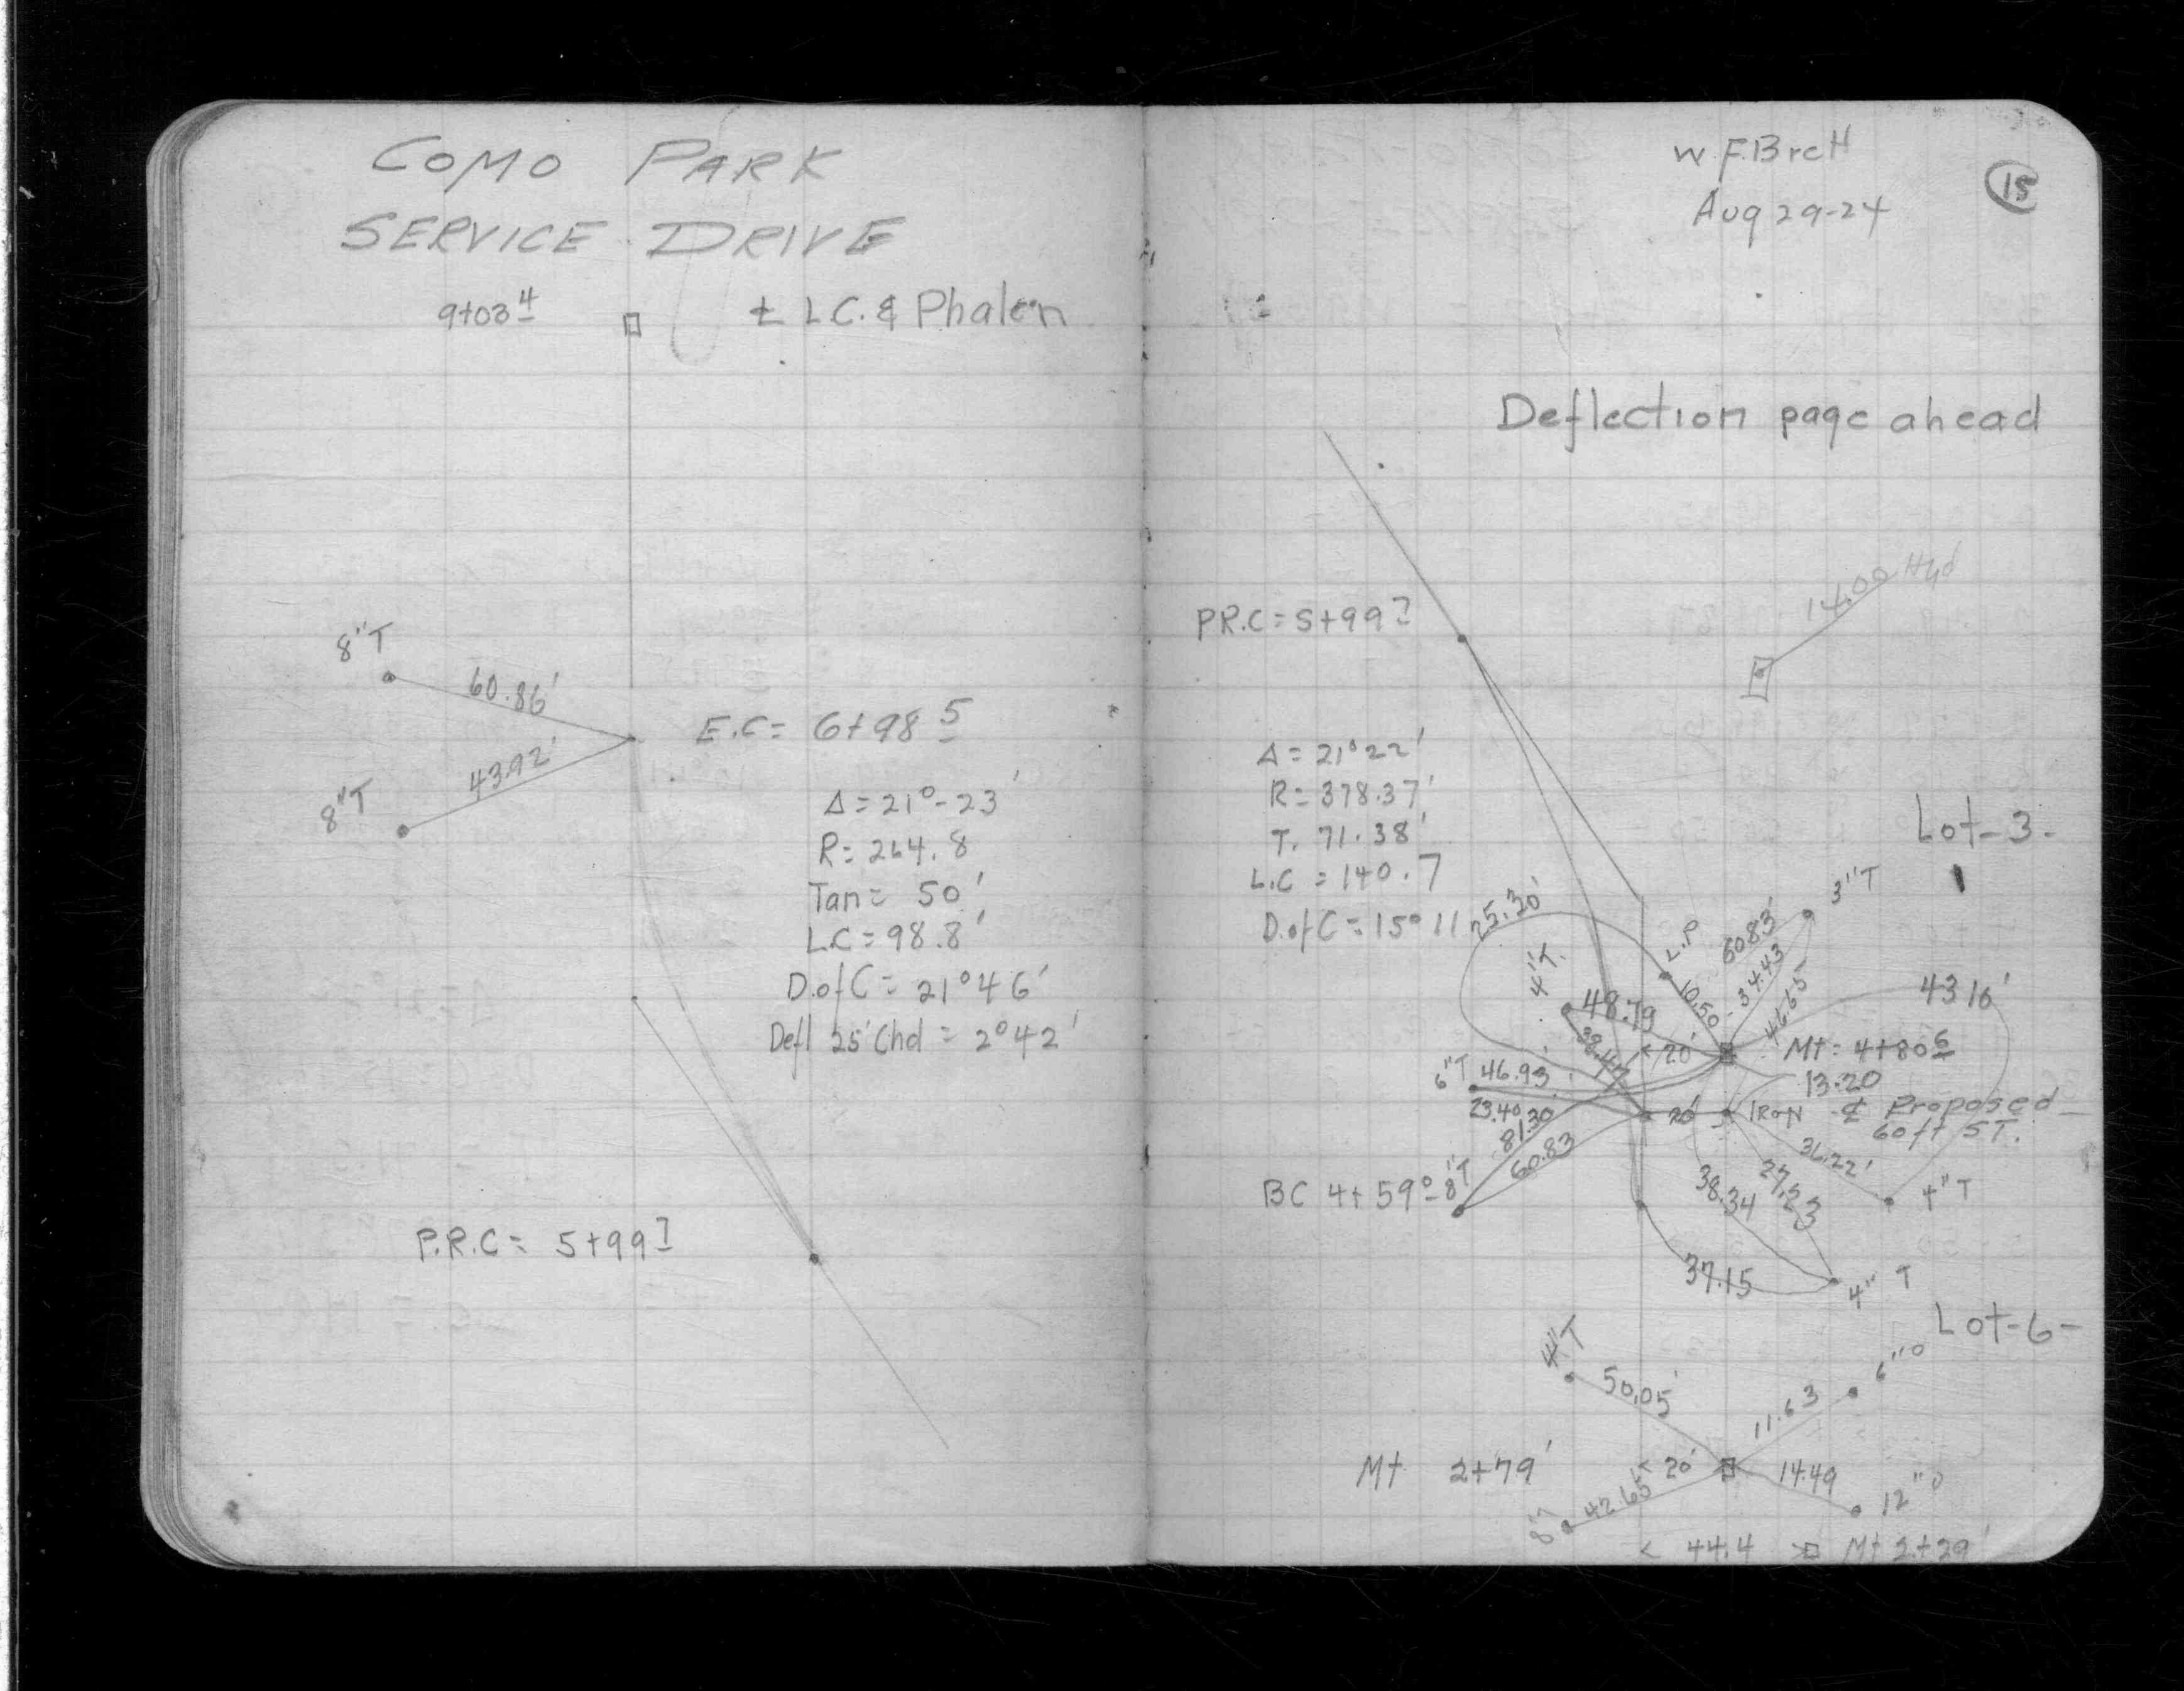 COMO PARK
SERVICE DRIVE
9+03 4
± L.C. & Phalen
8"T
60.86'
43.92'
8"T
E.C = 6+98 5
Δ = 21°-23'
R = 264.8
Tan = 50'
L.C = 98.8'
D.of C = 21°46'
Defl 25' Chd = 2°42'
P.R.C = 5+99 7
W.F.Brett
Aug 29-24
15
Deflection page ahead
14.00 Hyd
P.R.C = 5+99 7
Δ = 21°22'
R = 378.37'
T. 71.38'
L.C = 140.7
D.of C = 15°11
Lot-3-
25.30'
L.P
60.83'
3"T
34.43
46.65
10.50
4"T.
48.79
38.47
20'
43 16'
Mt = 4+80 6
13.20
6"T 46.93
23.40
81.30
60.83
20'
IRON
¢ Proposed
60 ft ST.
36.22'
27.23
38.34
BC 4+59 0
8"T
4"T
37.15
4" T
Lot-6-
4"T
50.05'
11.63
6"O
Mt 2+79'
< 20'
14.49
12"O
42.65'
8"T
< 44.4 > Mt 2+29'